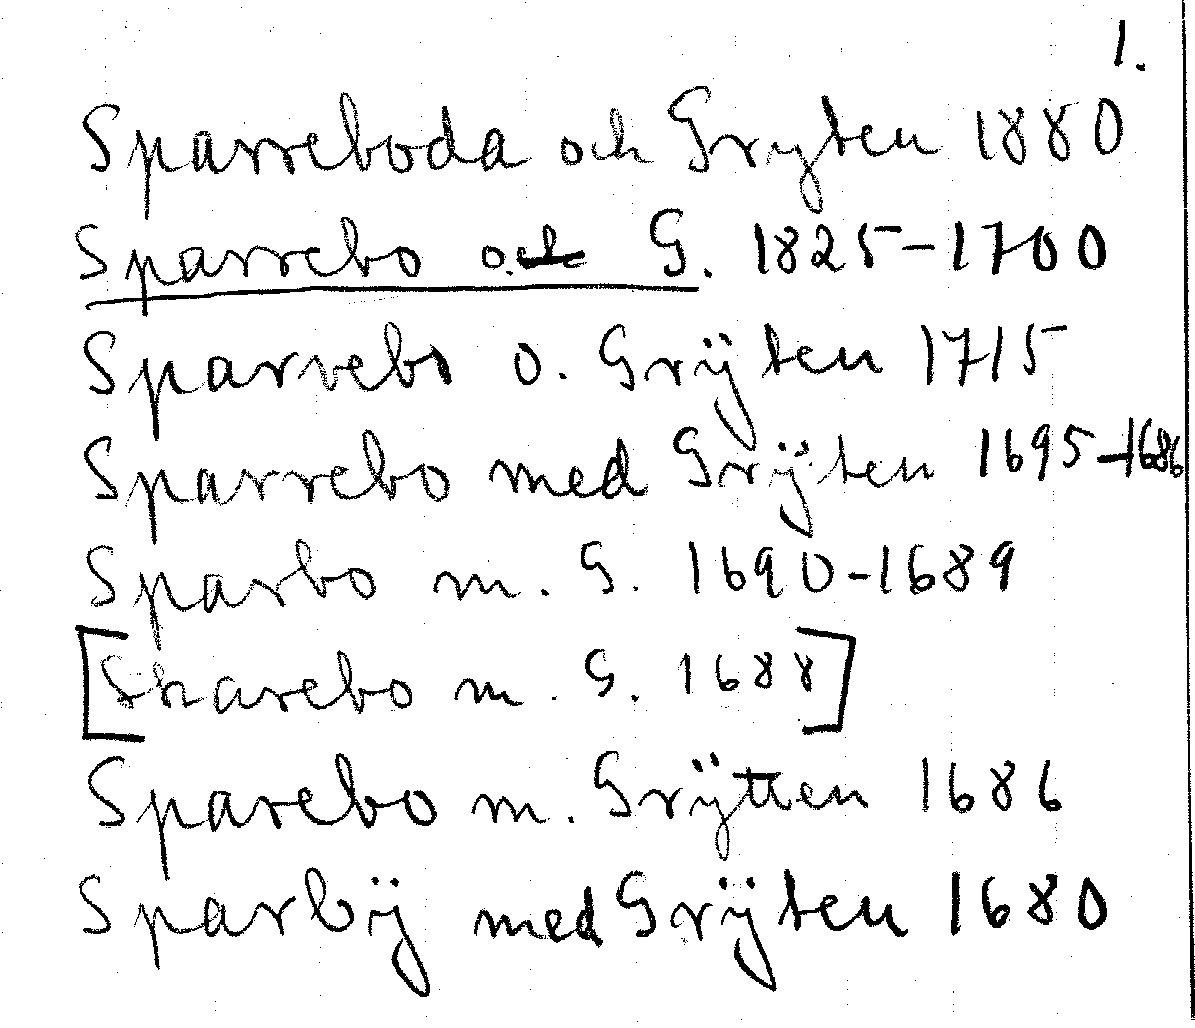 1.
Sparreboda och Gryten 1880
Sparrebo och G. 1825-1700
Sparrebo o. Grÿten 1715
Sparrebo med Grÿten 1695-1686
Sparbo m. G. 1690-1689
[Skarebo m. G. 1688]
Sparebo m. Grÿtten 1686
Sparbÿ med Grÿten 1680